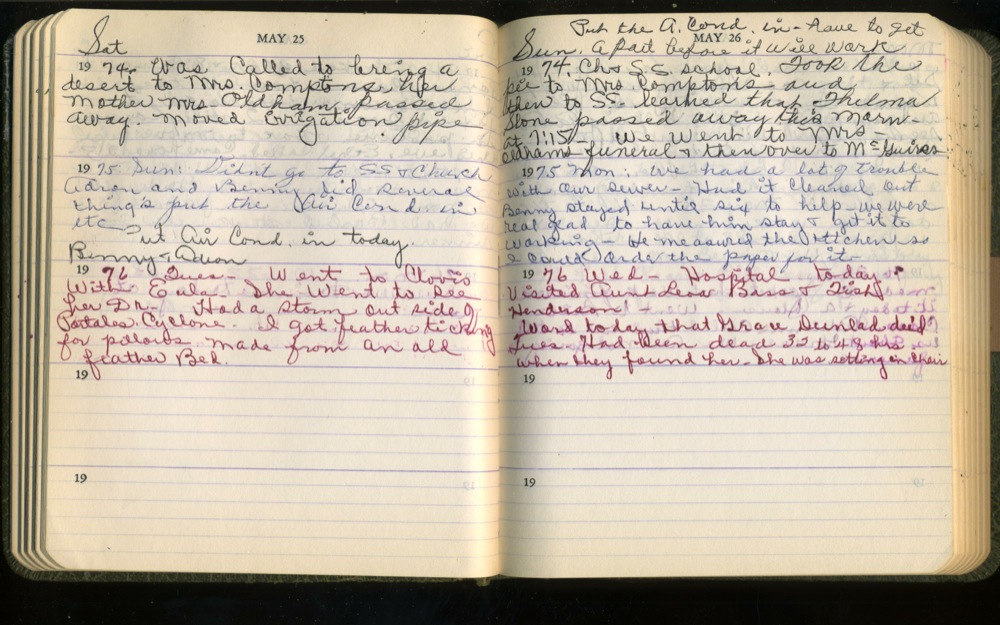 MAY 25
Sat
19 74. Was Called to bring a
desert to Mrs. Comptons, her
Mother Mrs. Oldham, passed
away. Moved Errigation pipe
19 75 Sun: Didnt go to SS & Church
Adron and Benny did several
thing's put the Air Cond in,
etc
Put Air Cond. in today.
Benny &
19 76 Tues- Went to Clovis
With Eula- She Went to see
her Dr. Had a storm out side of
Portales. Cyclone. I got feather ticking
for pillows. made from an old
feather Bed.
19
19
Put the A. Cond. in- have to get
MAY 26
Sun. a part before it will work
19 74. Ch & S.S. school. Took the
pie to Mrs. Comptons and
then to SS. learned that Thelma
Slone passed away this morn-
at 7:15- We went to Mrs-
Oldhams funeral & then over to McGuires
19 75 Mon: we had a lot of trouble
with our sewer- Had it cleaned out
Benny stayed until six to help- we were
real glad to have him stay & get it to
working- He measured the kitchen so
I could order the paper for it-
19 76 Wed- Hospital today-
Visited Aunt Leva Bass & Tish
Henderson-
Word to day that Grace Dunlad died
Tues. Had been dead 32 to 48 hrs
when they found her. She was setting in chair
19
19